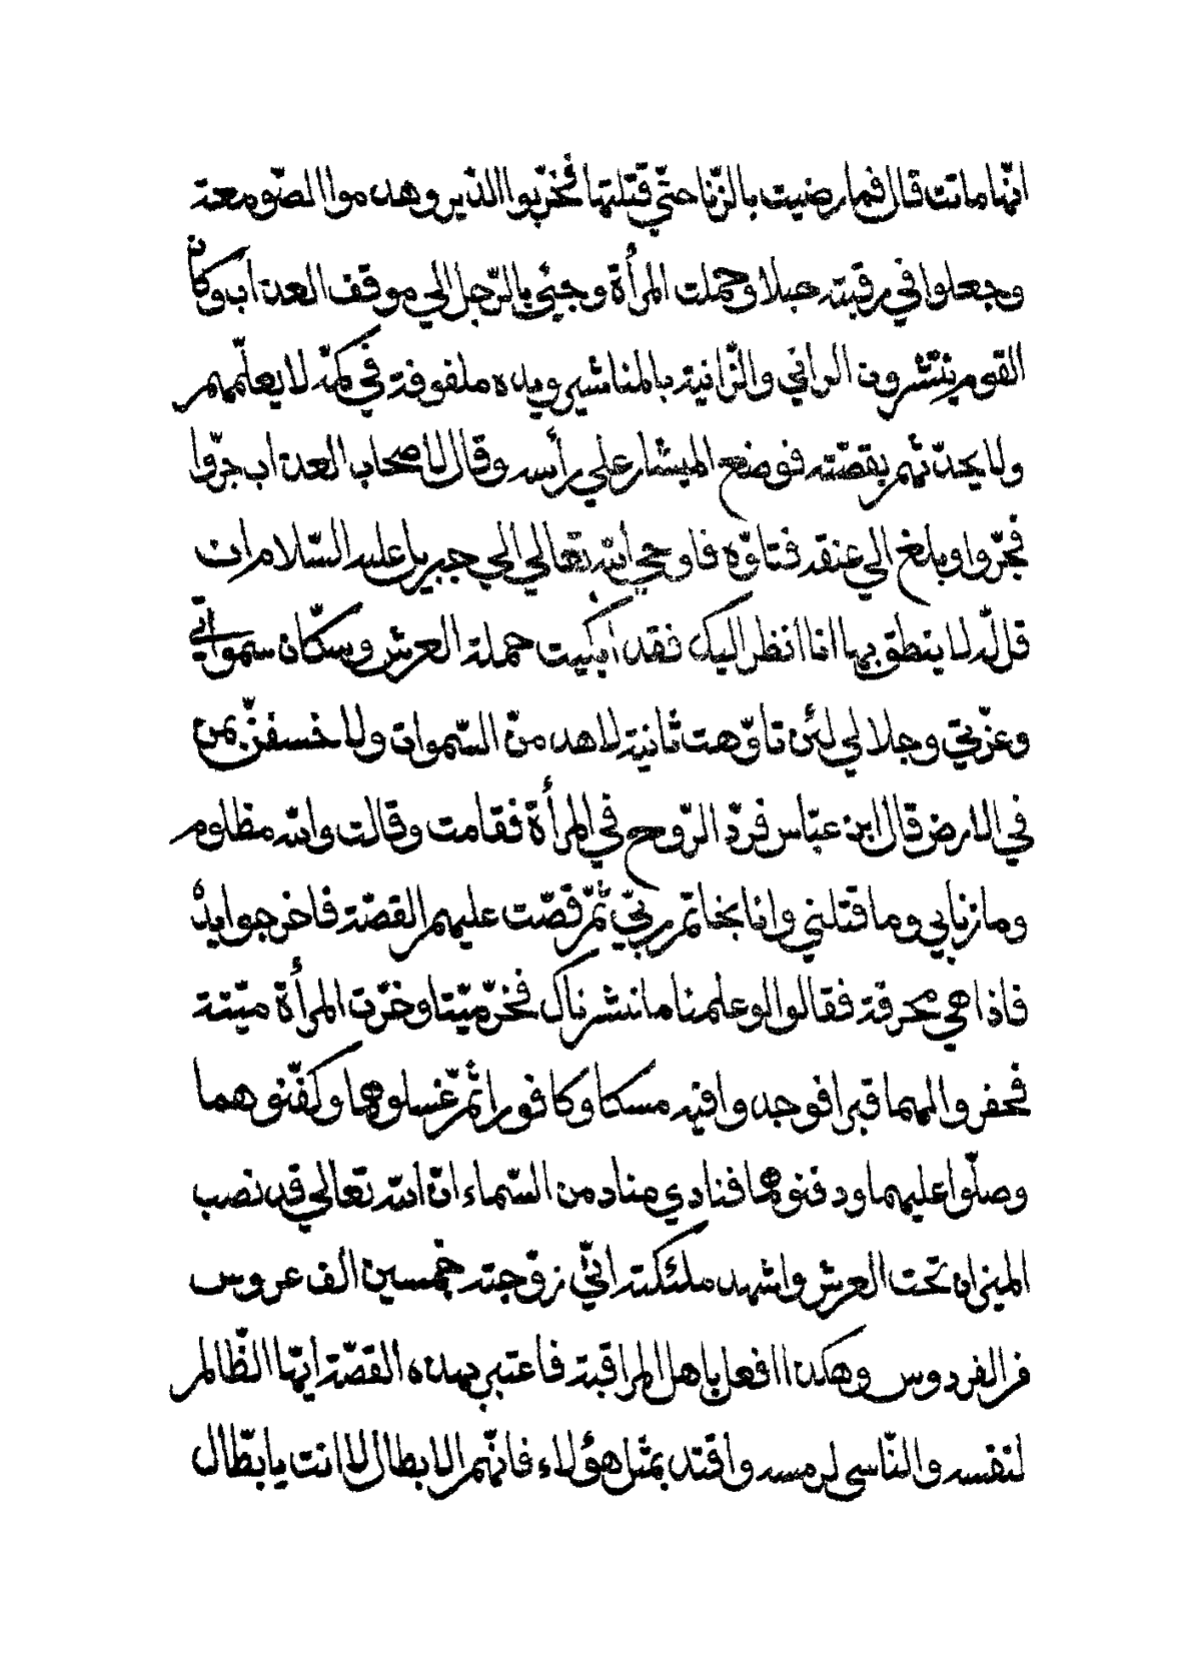 انّها ماتت قال فما رضيت بالزّنا حتّي قتلتها فخرّبوا الدّير وهدموا الصّومعة
وجعلوا في رقبته حبلا وحملت المرأة وجيئ بالرّجل الي موقف العذاب وكان
القوم ينتشرون الزاني والزّانية بالمناشير ويده ملفوفة في كمّه لا يعلّمهم
ولا يحدّثهم بقصّته فوضع الميشار علي رأسه وقال لاصحاب العذاب جرّوا
فجرّوا وبلغ الي عنقه فتاوّه فاوحي الله تعالي الي جبريل عليه السّلام ان
قل له لا ينطق بها انا انظر اليك فقد ابكيت حملة العرش وسكّان سمواتي
وعزّتي وجلالي لئن تاوّهت ثانية لاهدمنّ السّموات ولاخسفنّ بمن
في الارض قال ابن عبّاس فردّ الرّوح في المرأة فقامت وقالت والله مظلوم
وما زنا بي وما قتلني وانا بخاتم ربّي ثمّ قصّت عليهم القصّة فاخرجوا يده
فاذا هي محرقة فقالوا لو علمنا ما نشرناك فخرّ ميّتا وخرّت المرأة ميّتة
فحفروا لهما قبرا فوجدوا فيه مسكا وكافورا ثمّ غسلوهما وكفّنوهما
وصلّوا عليهما ودفنوهما فنادي مناد من السّماء انّ الله تعالي قد نصب
الميزان تحت العرش واشهد ملئكته انّي زوّجته خمسين الف عروس
فر الفردوس وهكذا افعل باهل المراقبة فاعتبر بهذه القصّة ايّها الظّالم
لنفسه والنّاسي لرمسه واقتد بمثل هؤلاء فانّهم الابطال لا انت يا بطّال